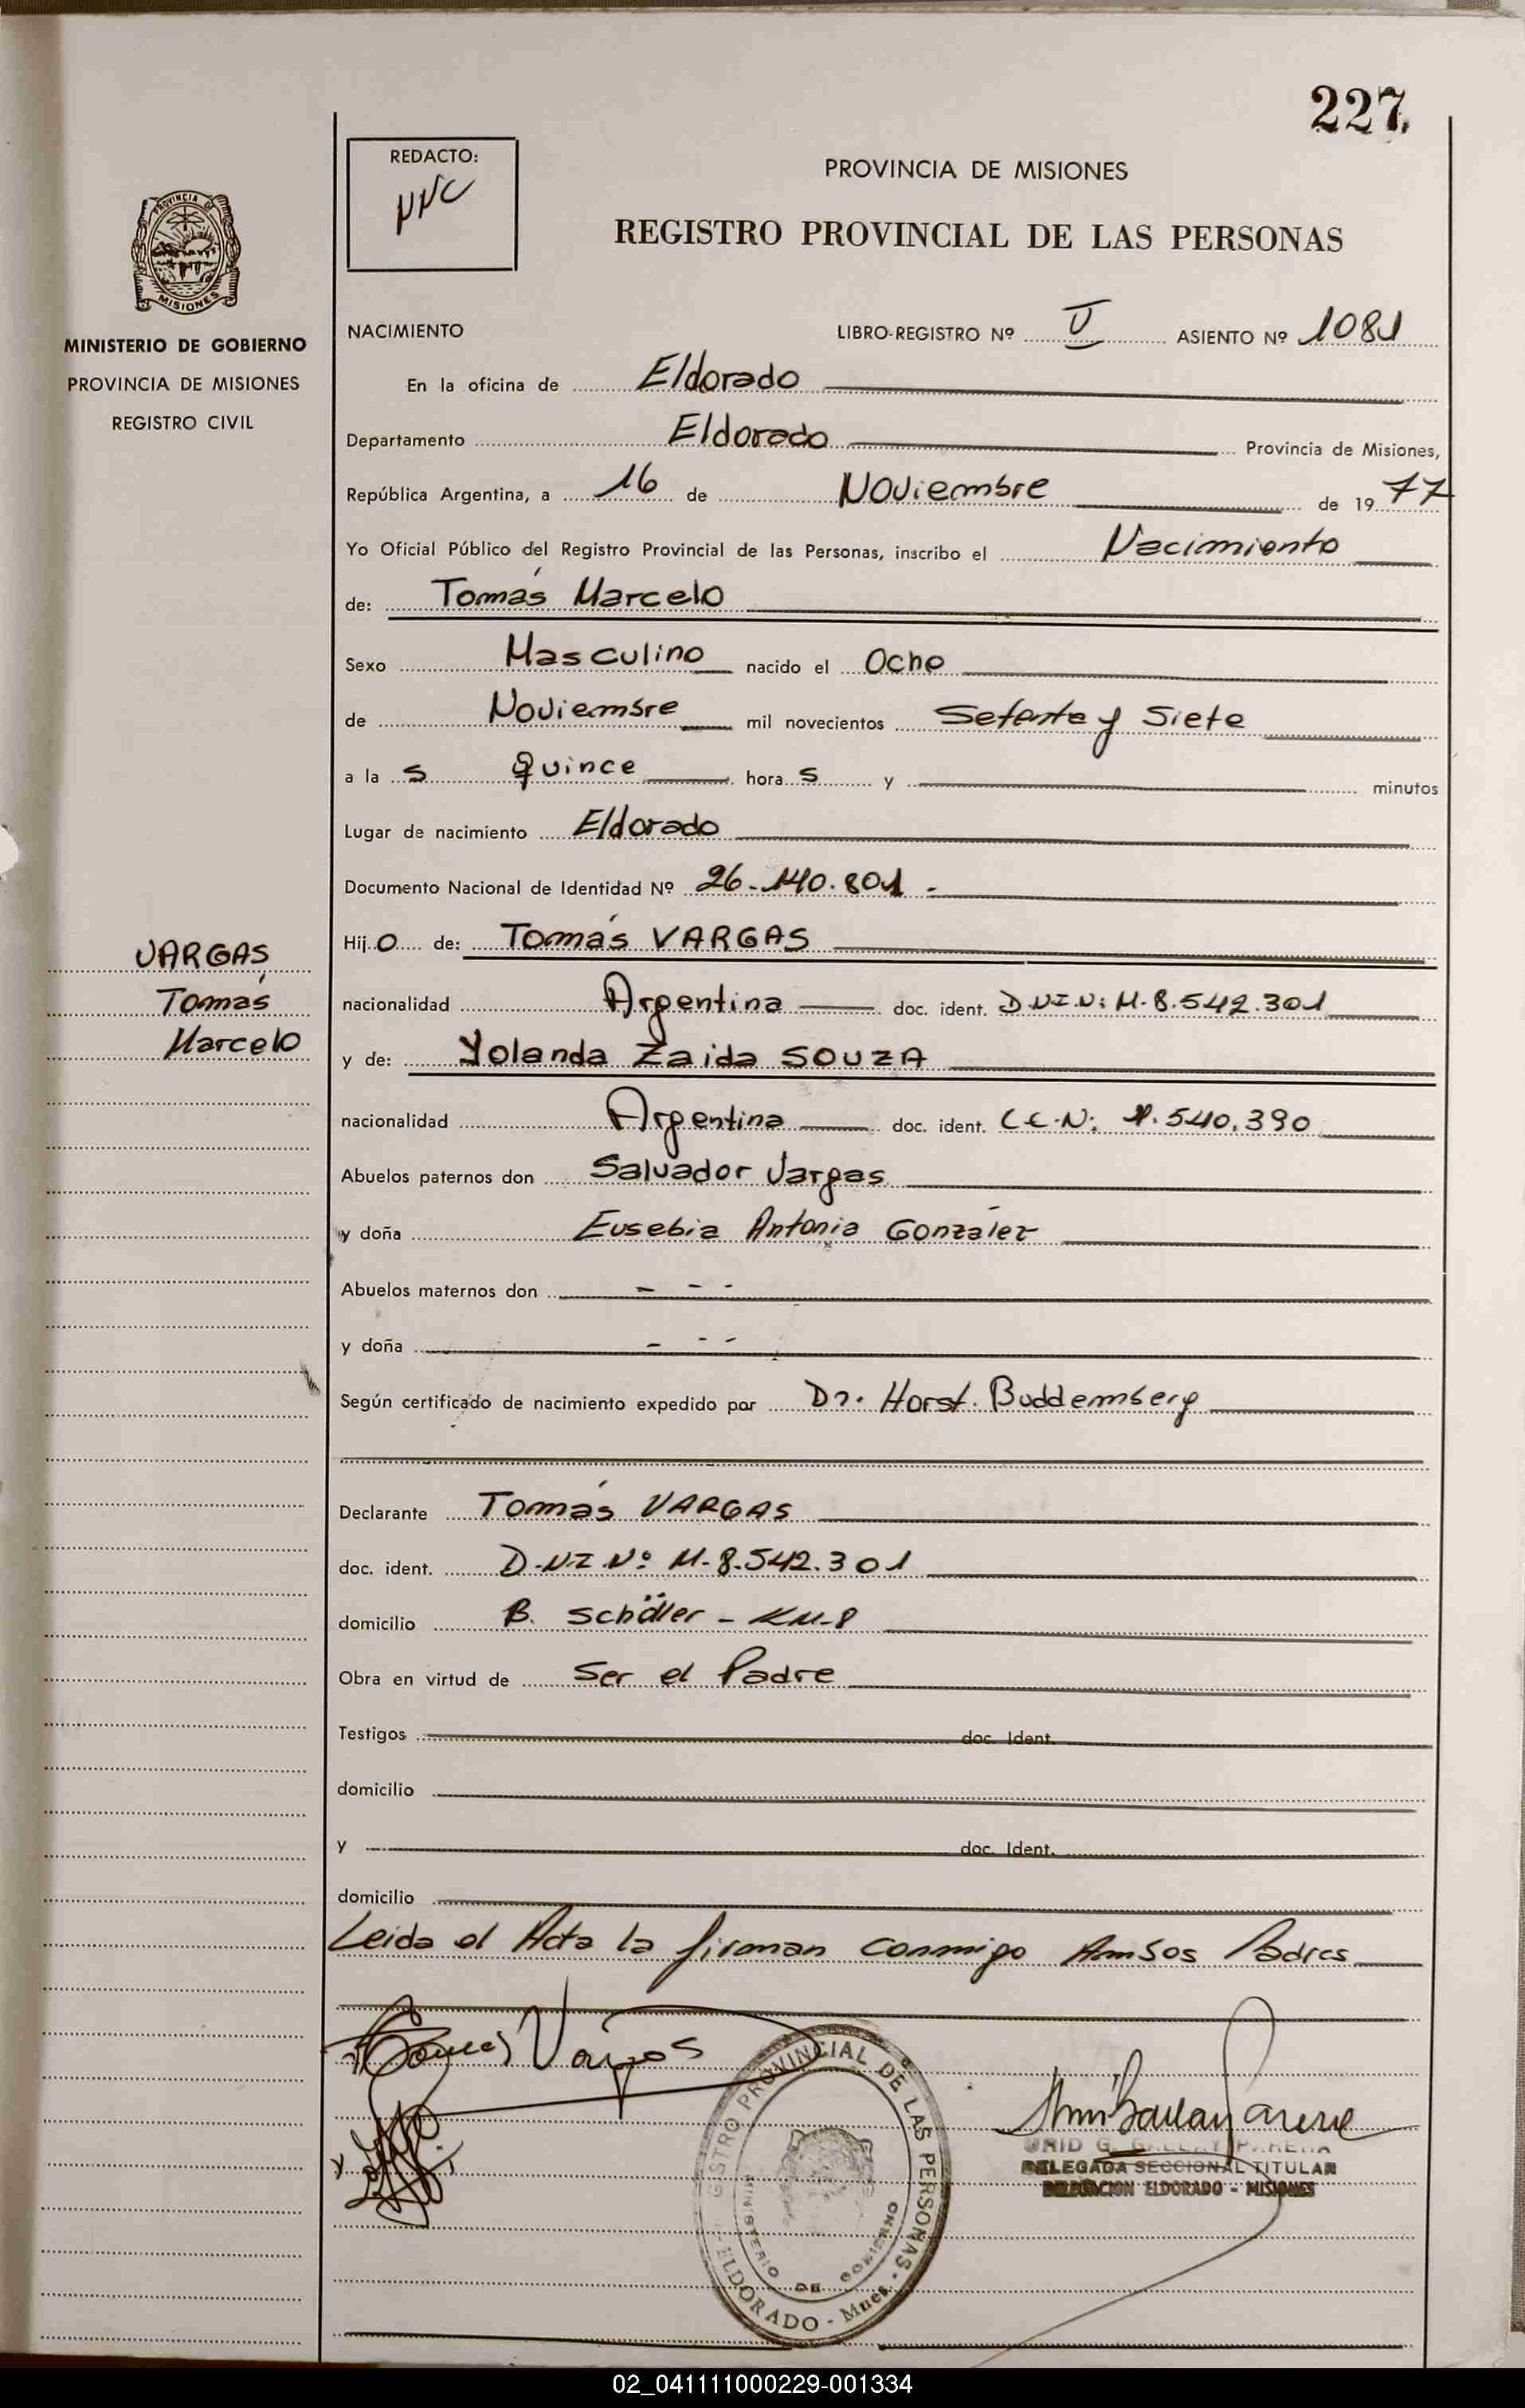 227
REDACTO:
PROVINCIA DE MISIONES
REGISTRO PROVINCIAL DE LAS PERSONAS
PROVINCIA DE
MISIONES
MINISTERIO DE GOBIERNO
PROVINCIA DE MISIONES
REGISTRO CIVIL
NACIMIENTO LIBRO-REGISTRO Nº V ASIENTO Nº 1081
En la oficina de Eldorado
Departamento Eldorado Provincia de Misiones,
República Argentina, a 16 de Noviembre de 1977
Yo Oficial Público del Registro Provincial de las Personas, inscribo el Nacimiento
de: Tomás Marcelo
Sexo Masculino nacido el Ocho
de Noviembre mil novecientos Setenta y Siete
a las Quince horas y minutos
Lugar de nacimiento Eldorado
Documento Nacional de Identidad Nº 26.140.801.-
VARGAS
Tomás
Marcelo
Hijo de: Tomás VARGAS
nacionalidad Argentina doc. ident. D.N.I.N: M-8.542.301
y de: Yolanda Zaida SOUZA
nacionalidad Argentina doc. ident. .540.390
Abuelos paternos don Salvador Vargas
y doña Eusebia Antonia González
Abuelos maternos don - - -
y doña - - -
Según certificado de nacimiento expedido por Dr. Horst. Buddemberg
Declarante Tomás VARGAS
doc. ident. D.N.I.Nº M-8.542.301
domicilio B. Schöller - KM-8
Obra en virtud de Ser el Padre
Testigos doc. Ident.
domicilio
y doc. Ident.
domicilio
Leida el Acta la firman conmigo Ambos Padres
Tomas Vargas
GISTRO PROVINCIAL DE LAS PERSONAS
ELDORADO - Mnes.
MINISTERIO DE GOBIERNO
DELEGADA SECCIONAL TITULAR
DELEGACION ELDORADO - MISIONES
02_041111000229-001334